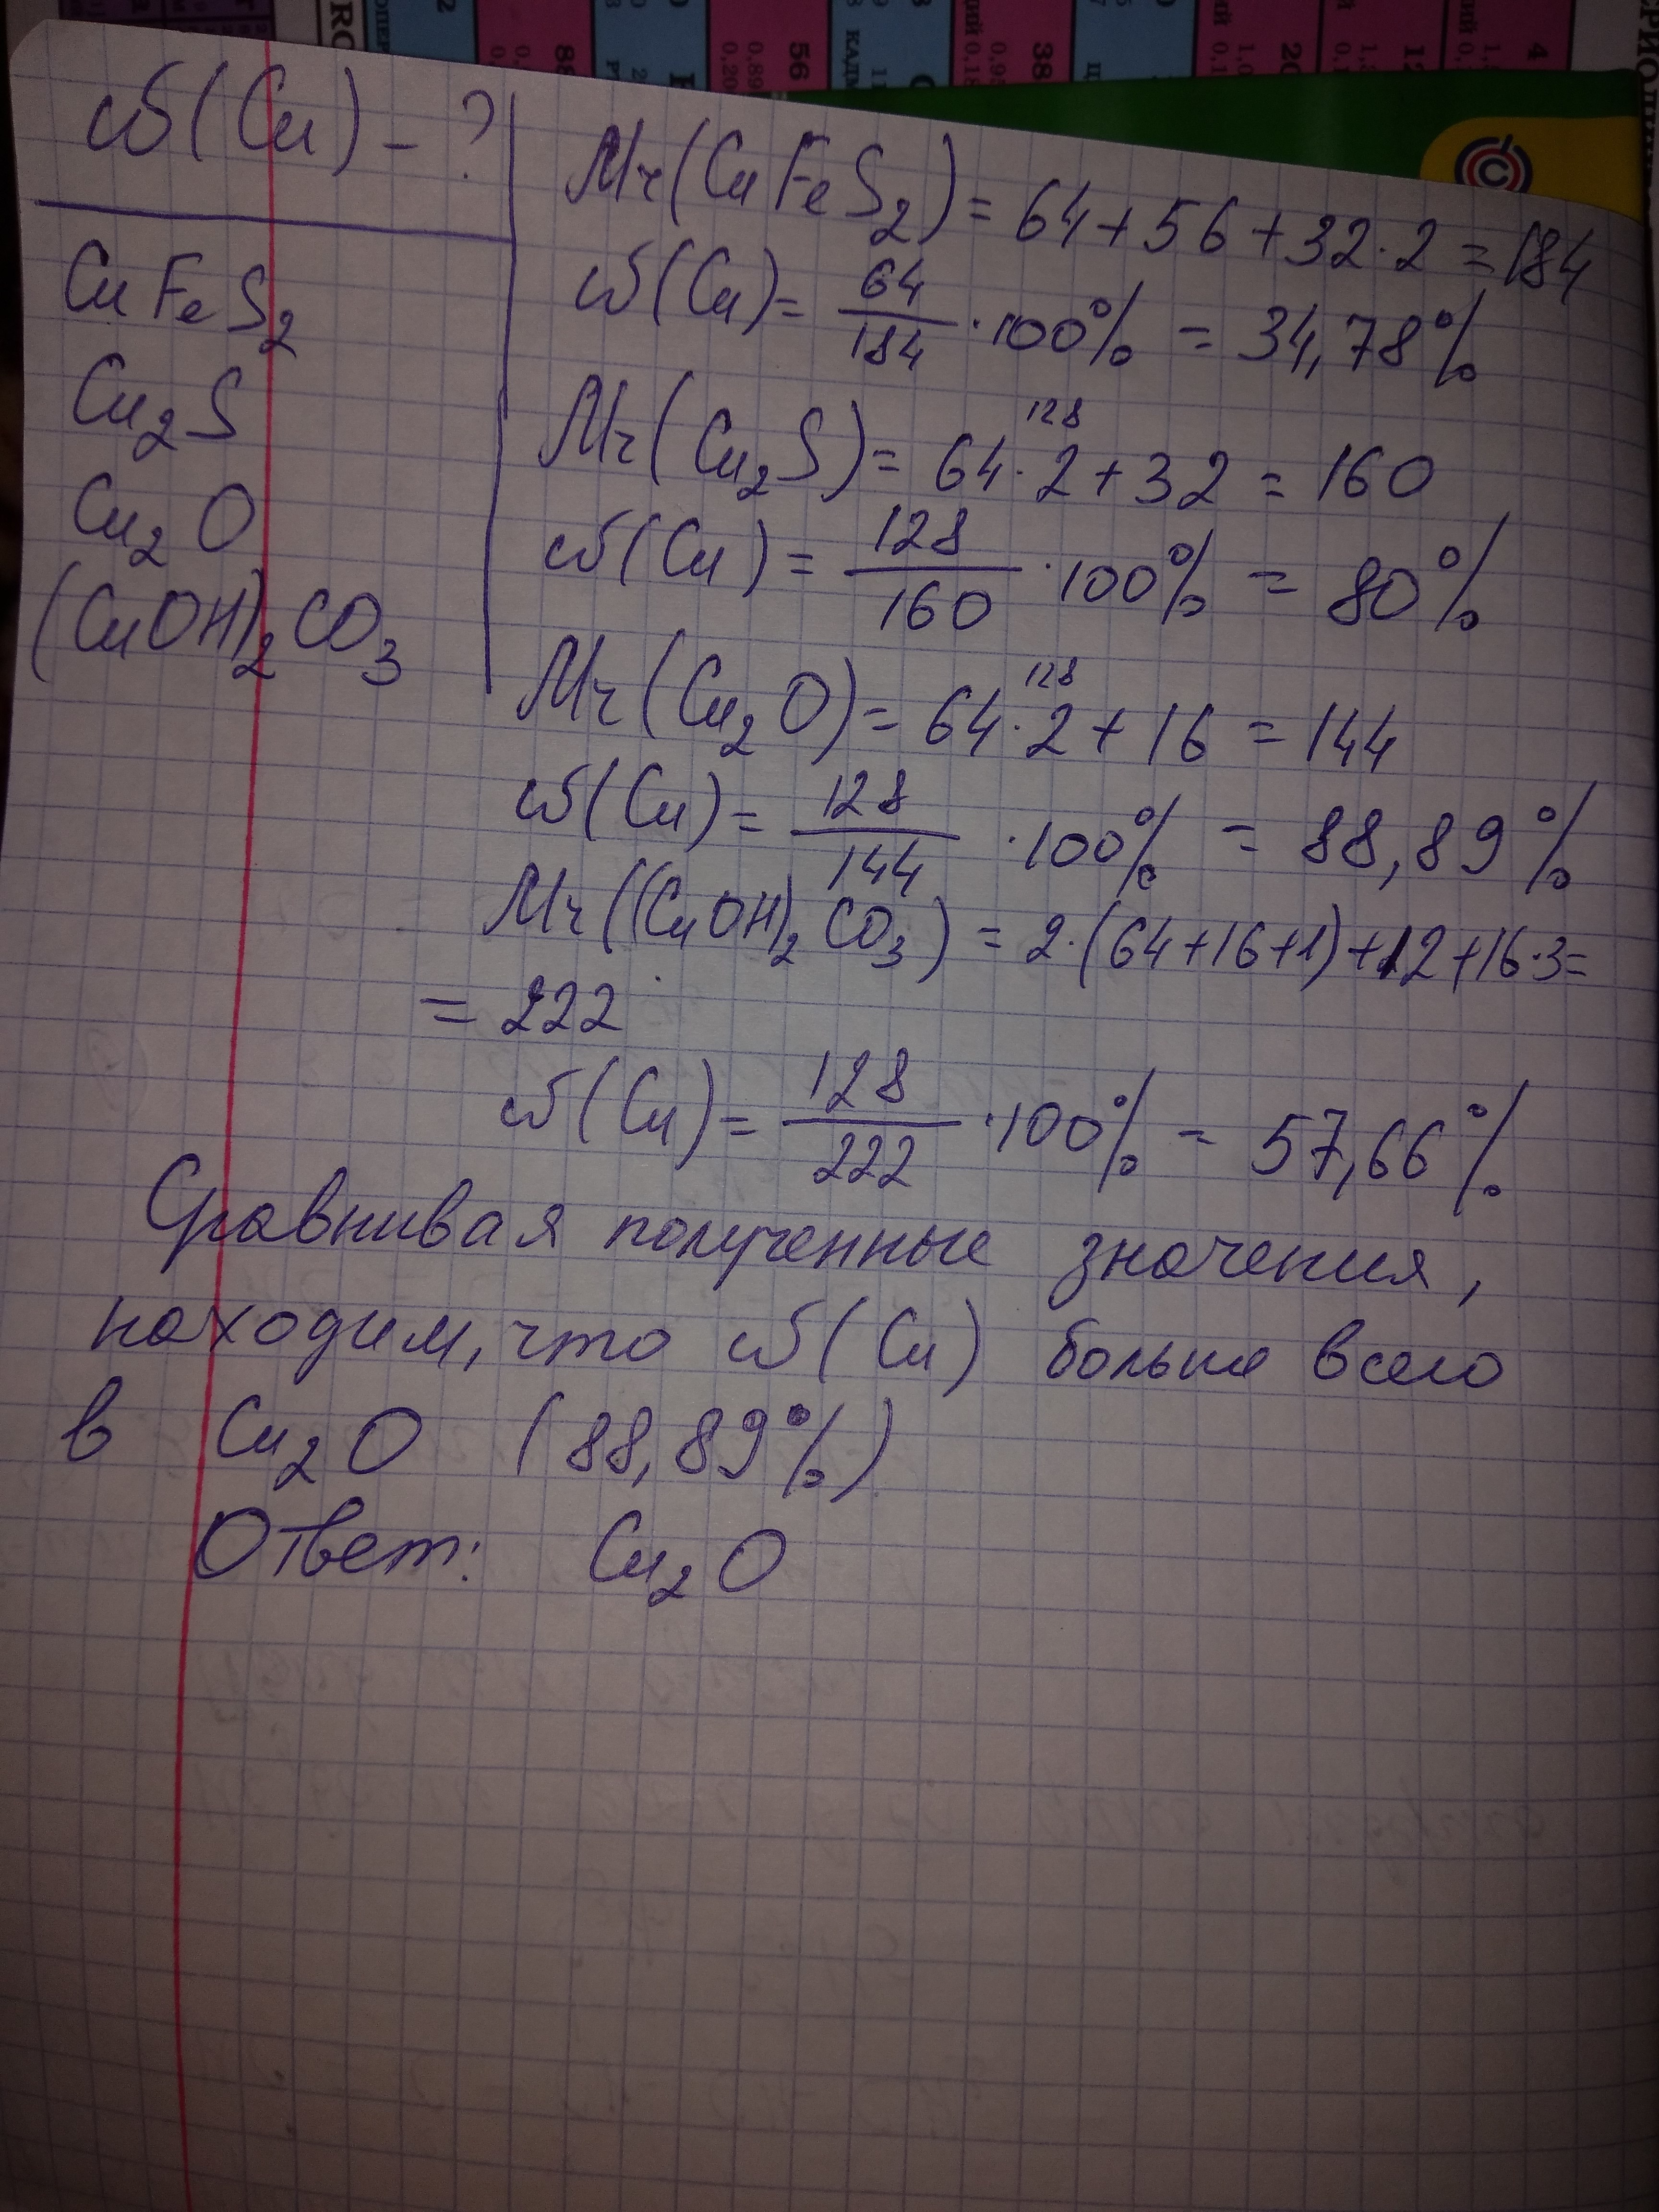 ω(Cu) - ?
CuFeS₂
Cu₂S
Cu₂O
(CuOH)₂CO₃
Mr(CuFeS₂) = 64 + 56 + 32·2 = 184
ω(Cu) = 64/184 · 100% = 34,78%
128
Mr(Cu₂S) = 64·2 + 32 = 160
ω(Cu) = 128/160 · 100% = 80%
128
Mr(Cu₂O) = 64·2 + 16 = 144
ω(Cu) = 128/144 · 100% = 88,89%
Mr((CuOH)₂CO₃) = 2·(64+16+1)+12+16·3=
= 222
ω(Cu) = 128/222 · 100% = 57,66%
Сравнивая полученные значения,
находим, что ω(Cu) больше всего
в Cu₂O (88,89%)
Ответ: Cu₂O